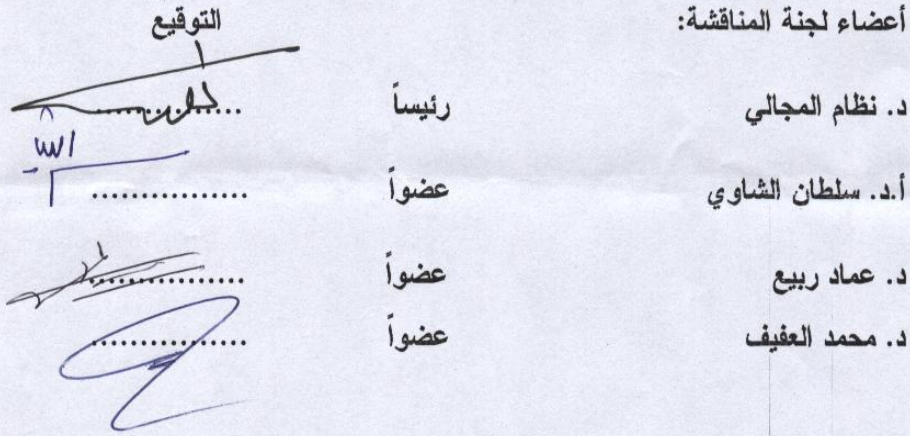 أعضاء لجنة المناقشة: التوقيع
د. نظام المجالي رئيساً ................
أ.د. سلطان الشاوي عضواً ................
د. عماد ربيع عضواً ................
د. محمد العفيف عضواً ................